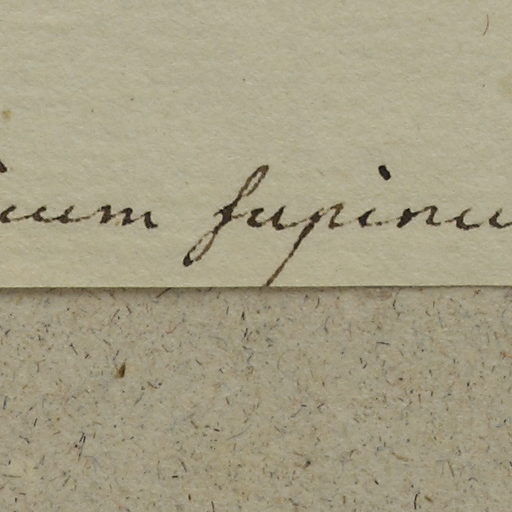 ium ſupinu